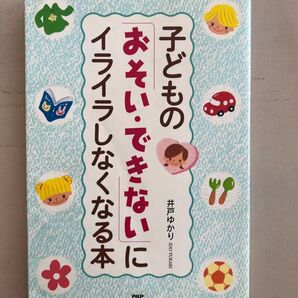 子どもの
「おそい・できない」に
イライラしなくなる本
井戸ゆかり
IDO YUKARI
PHP